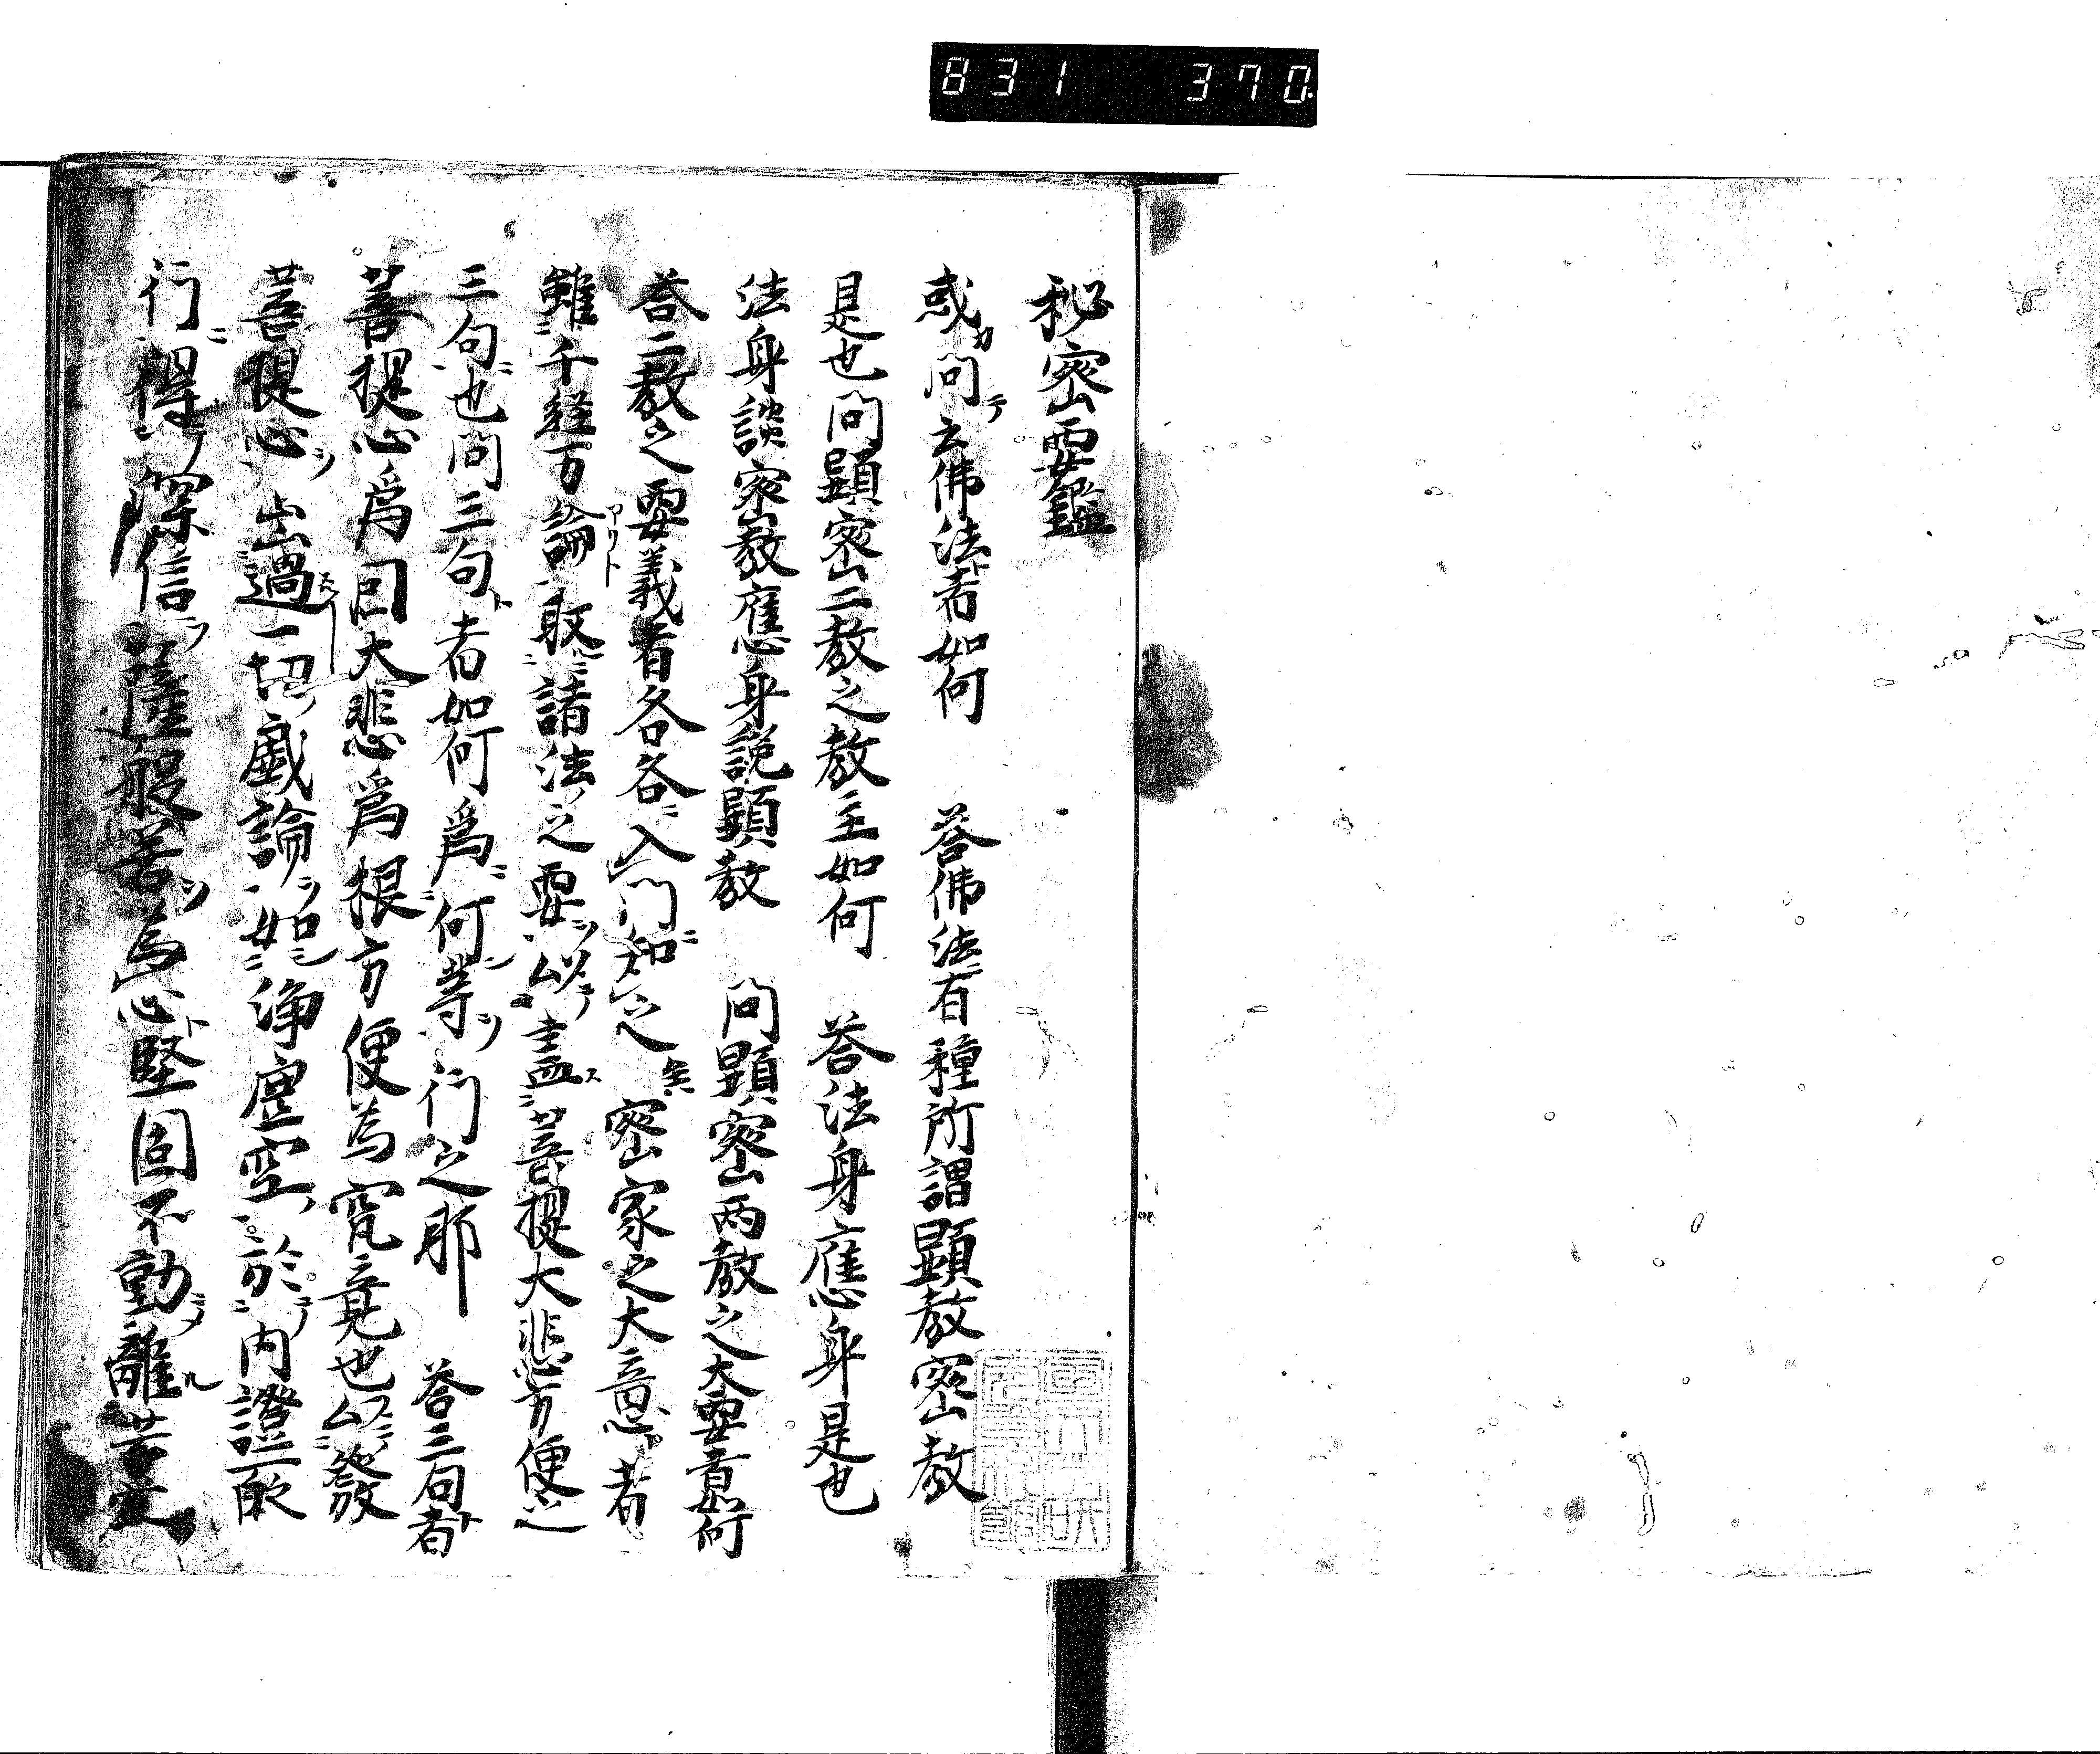 831 370
秘密要鑑
或問云佛法者如何 答佛法有種所謂顕教密教
是也問顕密二教之教主如何 答法身應身是也
法身談密教應身説顕教 問顕密两教之大要意如何
答二教之要義者各各入門知之矣密家之大意者
雖千経万論アリト取諸法之要以盡菩提大悲方便之
三句也問三句者如何爲何等行之耶 答三句者
菩提心爲因大悲爲根方便為究竟也以發
菩提心出過一切戯論如浄虚空於内證
行得深信薩般若為心堅固不動離